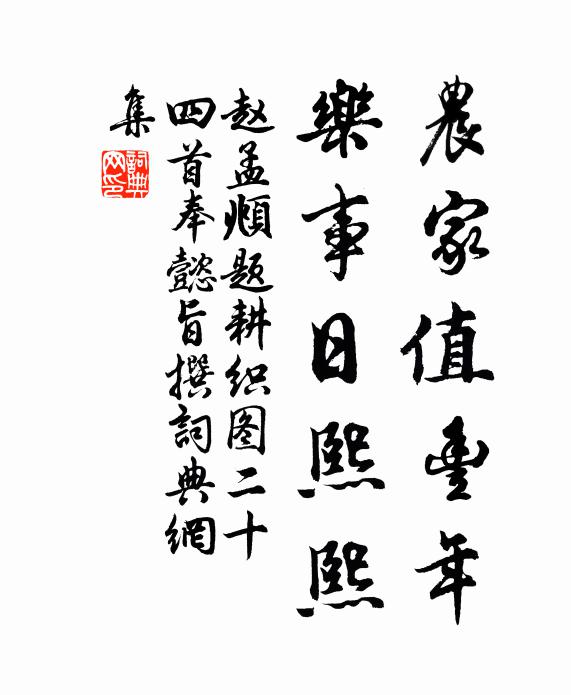 農家值豊年
樂事日熙熙
赵孟頫题耕织图二十
四首奉懿旨撰詞典網
集
詞典
网印